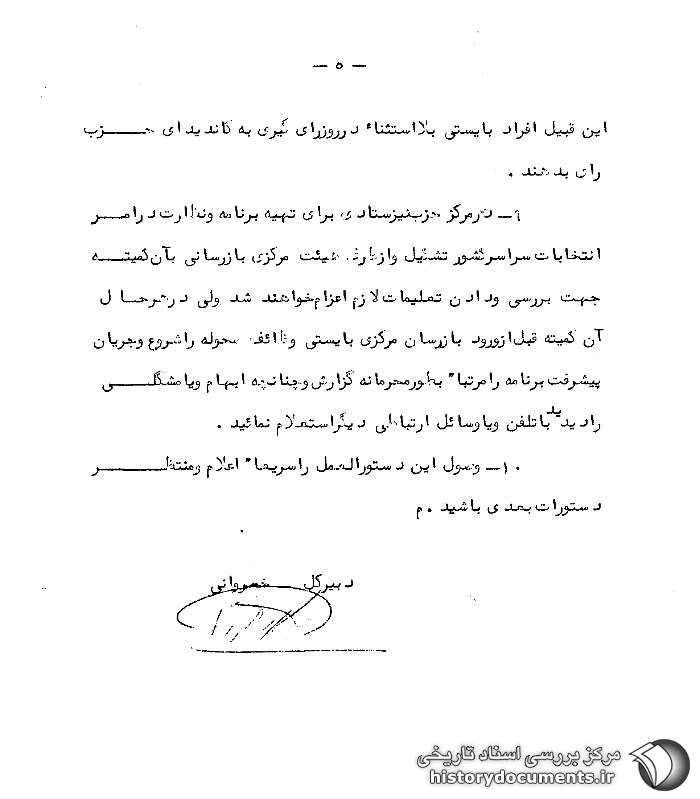 — ٥ —
این قبیل افراد بایستی بلااستثناء درروزرای گیری به کاندیدای حزب
رای بدهند .
۹ـ درمرکز حزبنیزستادی برای تهیه برنامه ونظارت درامر
انتخابات سراسرکشور تشکیل وازطرف هیئت مرکزی بازرسانی بآن‌کمیته
جهت بررسی ودادن تعلیمات لازم اعزام‌خواهند شد ولی درهرحال
آن کمیته قبل‌ازورود بازرسان مرکزی بایستی وظائف محوله راشروع وجریان
پیشرفت برنامه رامرتبا" بطورمحرمانه گزارش‌وچنانچه ابهام ویامشکلی
رادیدید باتلفن ویاوسائل ارتباطی دیگراستعلام نمائید .
۱۰ـ وصول این دستورالعمل راسریعا" اعلام ومنتظر
دستورات بعدی باشید .م
دبیرکل خسروانی
مرکز بررسی اسناد تاریخی
historydocuments.ir